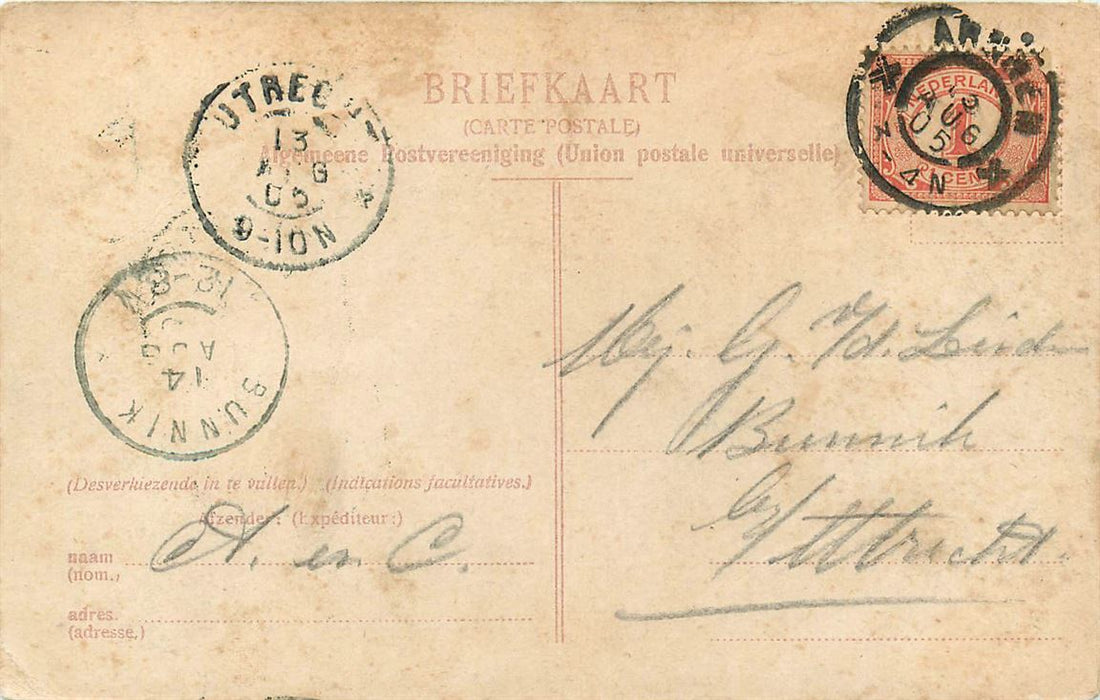 BRIEFKAART
(CARTE POSTALE)
Algemeene Postvereeniging (Union postale universelle)
UTRECH
13 AUG 05
9-10N
ARNHEM
13 AUG 05
4N
NEDERLAND
1
CENT
12-8N
AUG
14
BUNNIK
Mej. G. v/d. Leide
Bunnik
by Uttrecht.
(Desverkiezende in te vullen.) (Indications facultatives.)
Afzender: (Expéditeur:)
naam A. en C.
(nom.,
adres.
(adresse,)